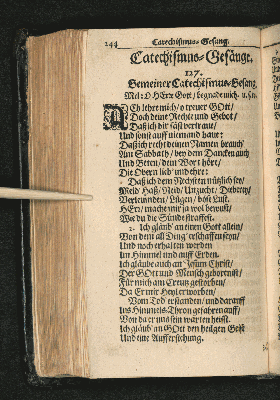 244 Catechismus-Gesäng.
Catechismus-Gesänge.
127.
Gemeiner Catechismus-Gesang
Mel: O HErre Gott / begnade mich. u.s.w.
ACh lehre mich / o treuer GOtt /
Doch deine Rechte und Gebot /
Daß ich dir fäst vertraue /
Und sonst auff niemand baue:
Daß ich recht deinen Namen brauch /
Am Sabbath / bey dem Dancken auch
Und Beten / dein Wort höre /
Die Obern lieb' und ehre:
Daß ich dem Nechsten nützlich sey /
Meid Haß / Neid / Unzucht / Dieberey /
Verleumden / Lügen / böse Lust.
HErr / mach' mir ja wol bewust /
Wie du die Sünde straffest.
2. Ich gläub' an einen Gott allein /
Von dem all Ding' erschaffen seyn /
Und noch erhalten werden
Im Himmel und auff Erden.
Ich gläube auch an Jesum Christ /
Der GOtt und Mensch gebohren ist /
Für mich am Creutz gestorben /
Da Er mir Heyl erworben /
Vom Tod erstanden / und darauff
Ins Himmels-Thron gefahren auff /
Von da er uns sein warten heisst.
Ich gläub' an GOtt den heilgen Geist
Und eine Aufferstehung.